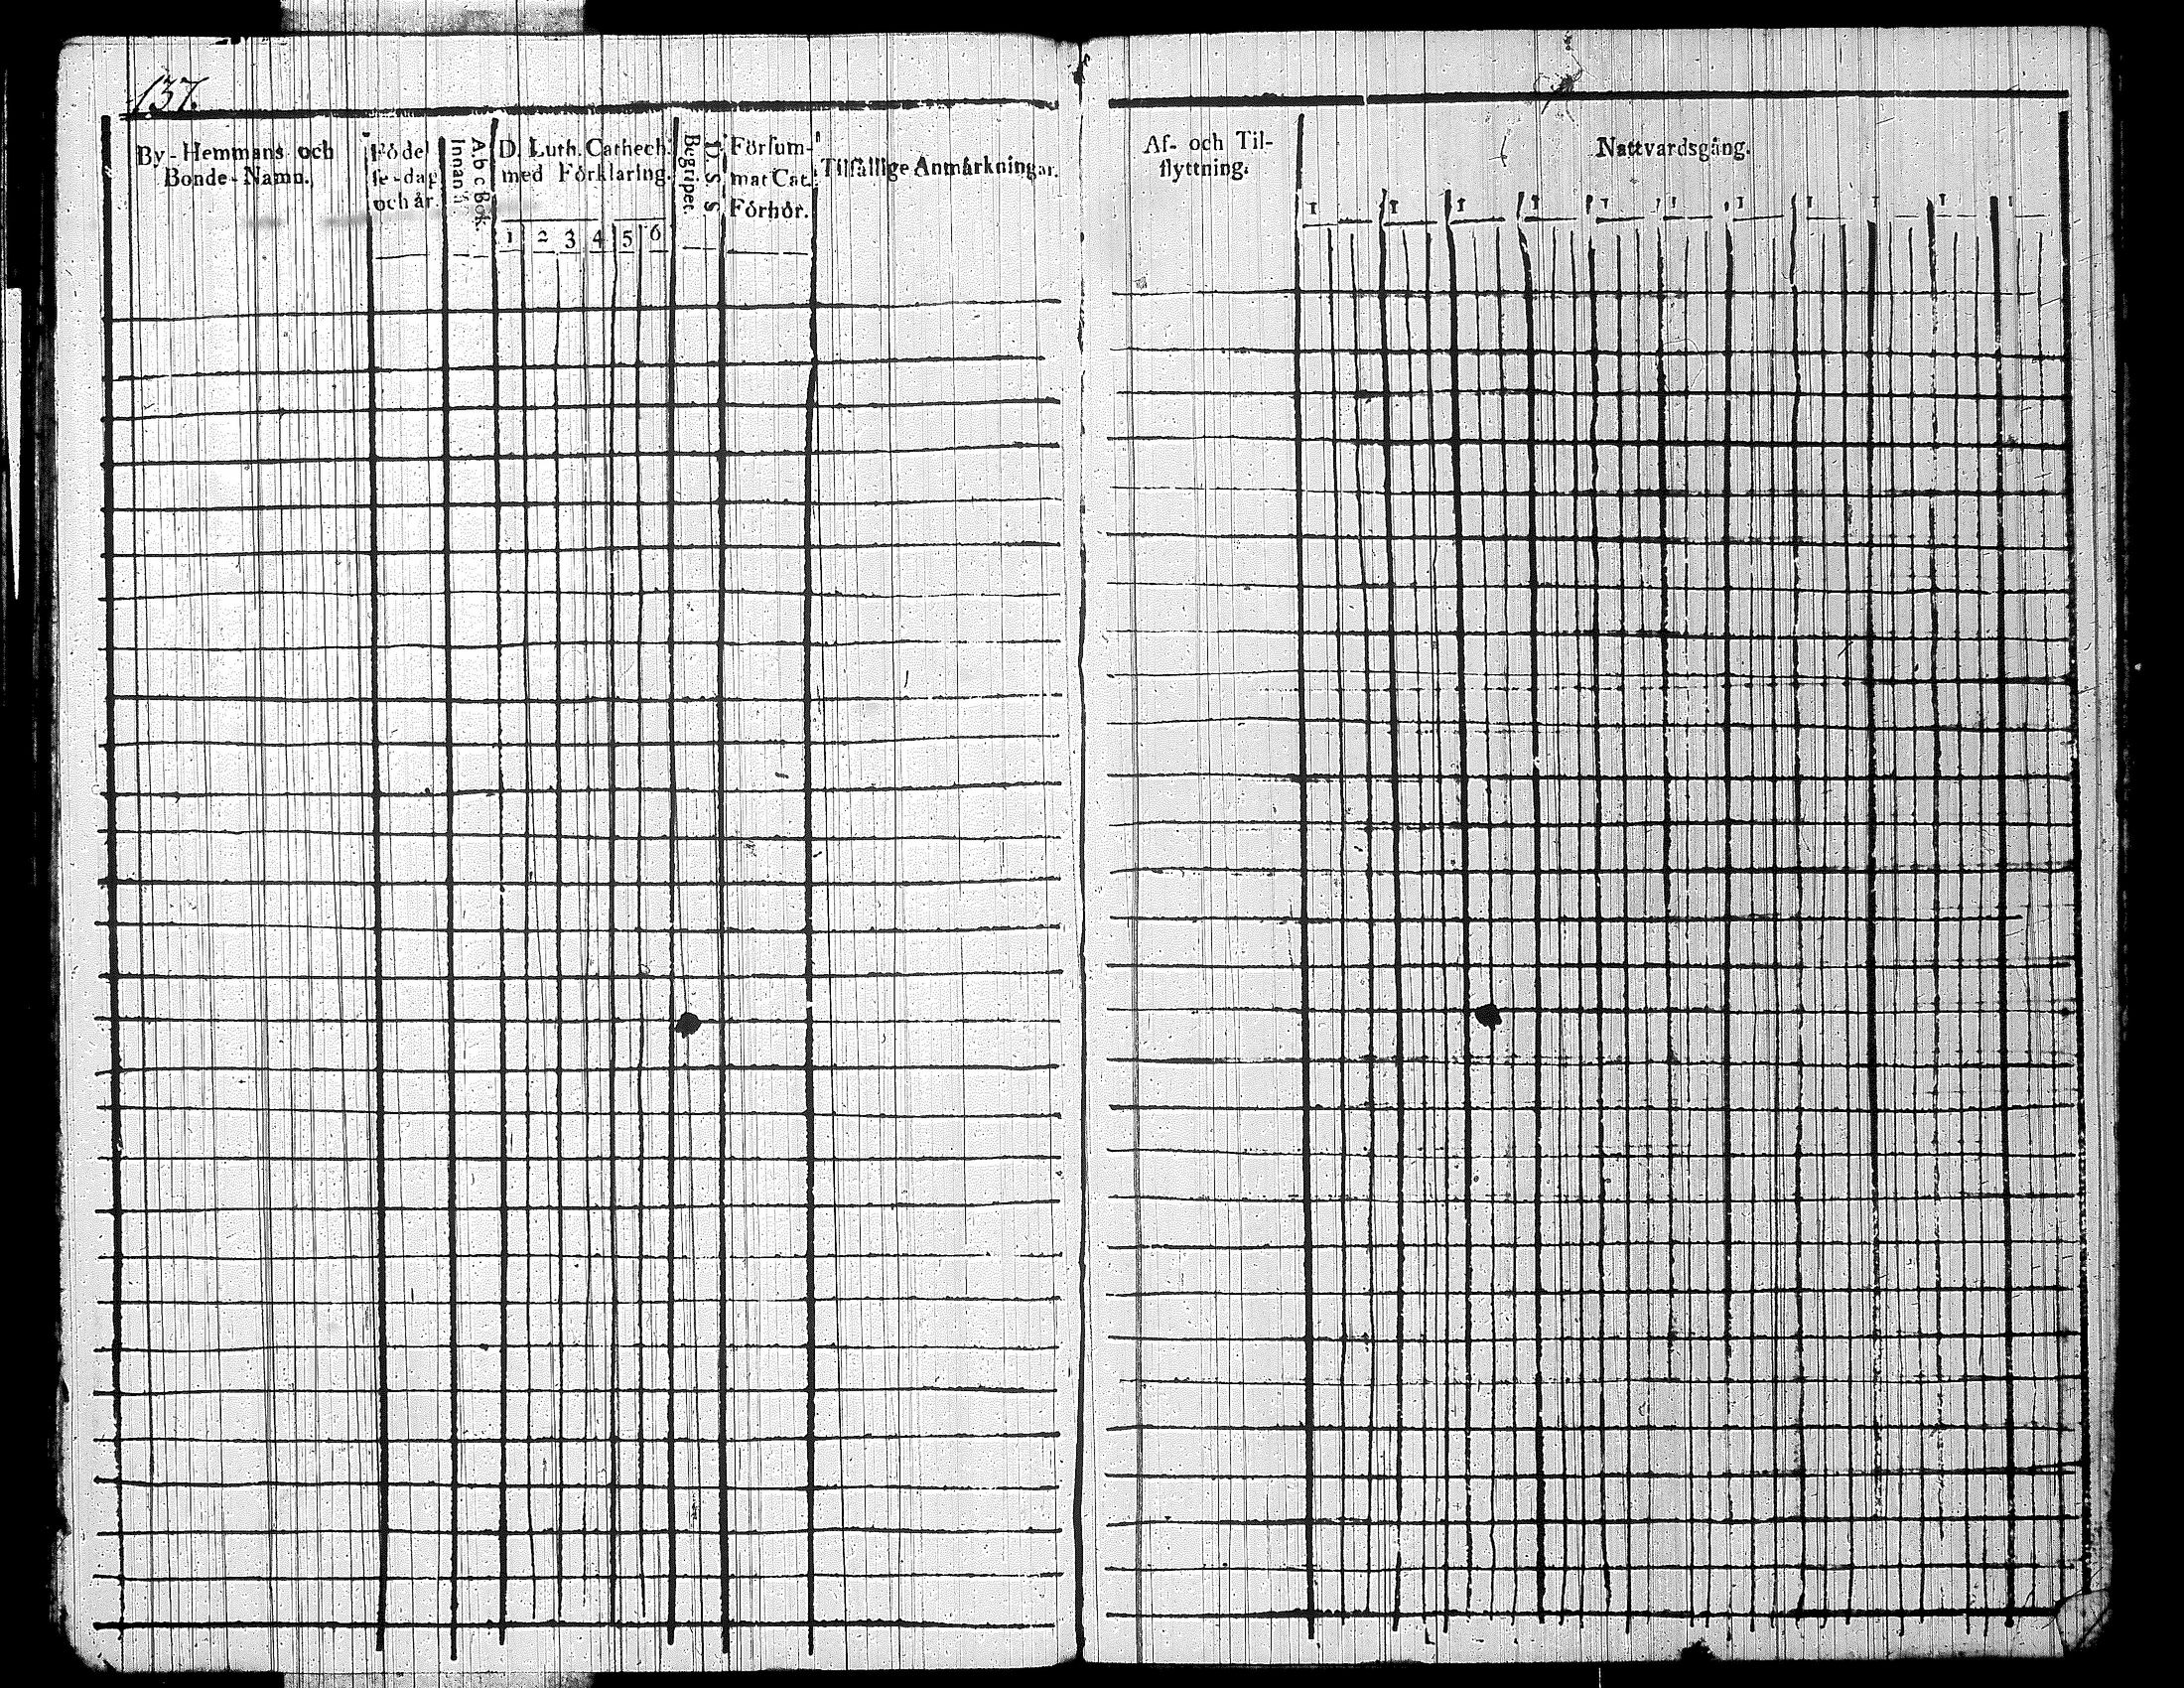 137.
By-Hemmans och
Bonde-Namn.
Födel
se-dag
och år.
Innan
A.b c Bok.
D. Luth. Cathech.
med Förklaring.
1 2 3 4 5 6
Begriper.
D. S. S
Försum-
mat Cat.
Förhör.
Tilfällige Anmärkningar.
Af- och Til-
flyttning.
Nattvardsgång.
1 1 1 1 1 1 1 1 1 1 1